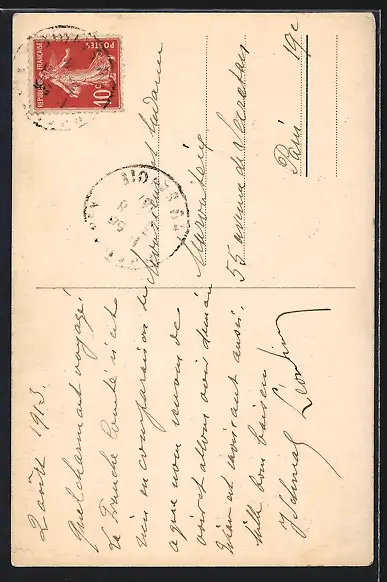 2 août 1913.
Quel charmant voyage!
La Franche Comté n'est
rien en comparaison de
ce que nous venons de
voir et allons voir demain
Hier est ravissant aussi.
Mille bons baisers
Monsieur et Madame
55 avenue de Secrétan
Paris 19e
REPUBLIQUE FRANÇAISE
POSTES
10c